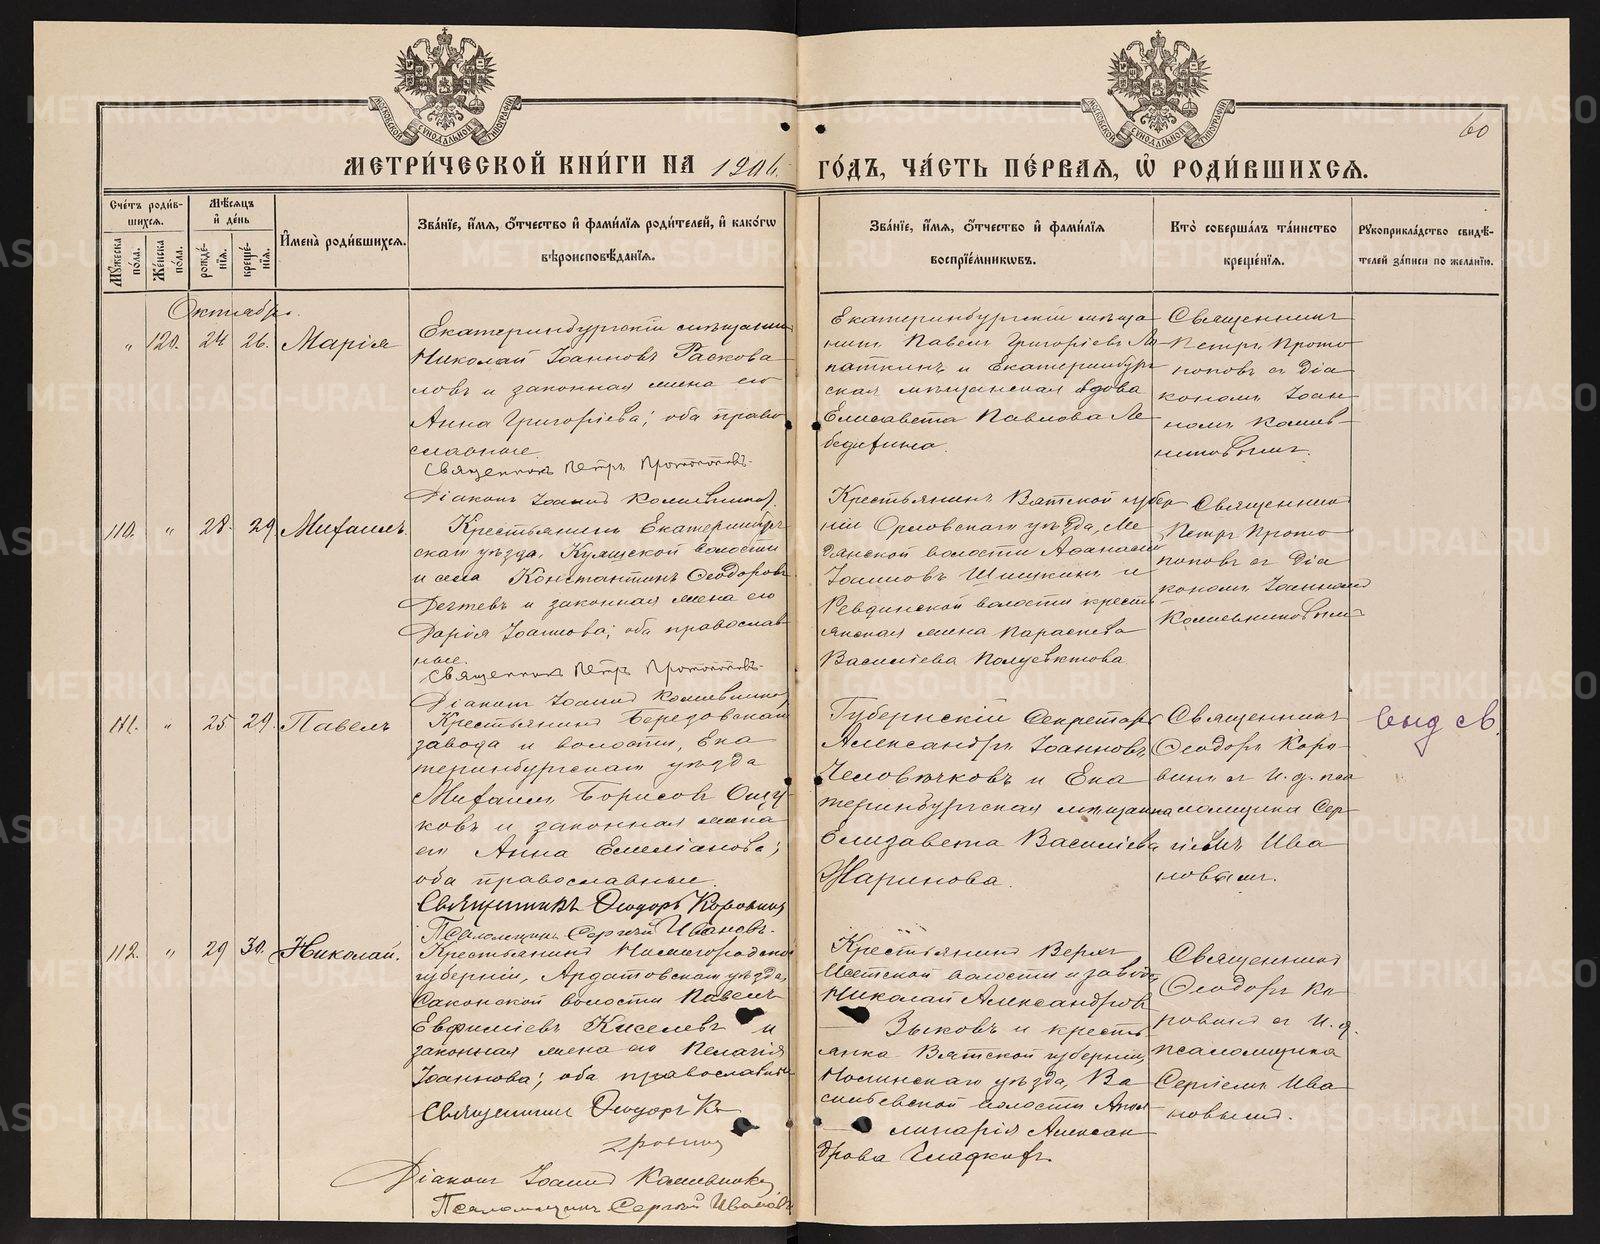 60
МЕТРИ́ЧЕСКОЙ КНИ́ГИ НА 1906 ГО́ДЪ, ЧА́СТЬ ПЕ́РВАЯ, Ѡ҆ РОДИ́ВШИХСЯ.
Сче́тъ роди́в-
шихся.
Мꙋжеска по́ла.
Же́нска по́ла.
Мѣ́сяцъ
и҆ де́нь
рожде́-
нїя.
креще́-
нїя.
И҆мена̀ роди́вшихся.
Зва́нїе, и҆́мя, ѻ҆́тчество и҆ фами́лїя роди́телей, и҆ како́гѡ
вѣроисповѣ́данїя.
Зва́нїе, и҆́мя, ѻ҆́тчество и҆ фами́лїя
воспрїе́мникѡвъ.
Кто̀ соверша́лъ та́инство
креще́нїя.
Рꙋкоприкла́дство свидѣ́-
телей за́писи по жела́нїю.
Октябрь.
" 120. 24 26. Марія
Екатеринбургскій мѣщанинъ
Николай Іоанновъ Раскова
ловъ и законная жена его
Анна Григоріева; оба право
славные.
Священникъ Петръ Протопоповъ.
Діаконъ Іоаннъ Кожевниковъ
Екатеринбургскій мѣща
нинъ Павелъ Григоріевъ Ло
паткинъ и Екатеринбург
ская мѣщанская вдова
Елисавета Павлова Ле
бедкина.
Священникъ
Петръ Прото
поповъ съ діа
кономъ Іоан
номъ Кожев-
никовымъ.
110. " 28. 29. Михаилъ
Крестьянинъ Екатеринбург
скаго уѣзда,
и села Константинъ Ѳеодоровъ
и законная жена его
Дарія Іоаннова; оба православ
ные.
Священникъ Петръ Протопоповъ.
Діаконъ Іоаннъ Кожевниковъ
Крестьянинъ Вятской губер
ніи Орловскаго уѣзда,
волости Аѳанасій
Іоанновъ Шишкинъ и
Ревдинской волости кресть
янская жена Параскева
Василіева Полуектова.
Священникъ
Петръ Прото
поповъ съ діа
кономъ Іоанномъ
Кожевниковымъ
111. " 25 29. Павелъ
Крестьянинъ Березовскаго
завода и волости, Ека
теринбургскаго уѣзда
Михаилъ Борисовъ
и законная жена
его Анна Емеліанова;
оба православные.
Священникъ Ѳеодоръ Коровинъ
Псаломщикъ Сергѣй Ивановъ.
Губернскій Секретарь
Александръ Іоанновъ
Человѣчковъ и Ека
теринбургская мѣщанка
Елизавета Василіева
Жаринова.
Священникъ
Ѳеодоръ Коро
винъ съ и. д. пса
ломщика Сер
гіемъ Ива
новымъ.
выд св.
112. " 29 30. Николай.
Крестьянинъ Нижегородской
губерніи, Ардатовскаго уѣзда,
Саконской волости Павелъ
Евфиміевъ Киселевъ и
законная жена его Пелагія
Іоаннова; оба православные
Священникъ Ѳеодоръ Ко
ровинъ
Діаконъ Іоаннъ Кожевниковъ
Псаломщикъ Сергѣй Ивановъ
Крестьянинъ Верхъ
Исетской волости и завода
Николай Александровъ
Зыковъ и кресть
янка Вятской губерніи,
Нолинскаго уѣзда, Ва
сильевской волости Апол
линарія Алексан
дрова Гладкихъ.
Священникъ
Ѳеодоръ Ко
ровинъ съ и. д.
псаломщика
Сергіемъ Ива
новымъ.